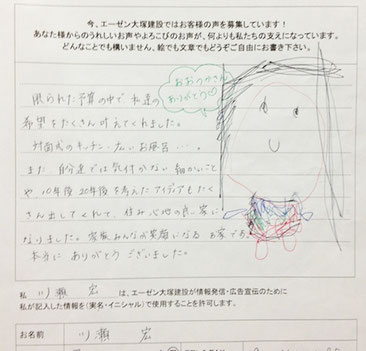 今、エーゼン大塚建設ではお客様の声を募集しています！
あなた様からのうれしいお声やよろこびのお声が、何よりも私たちの支えになっています。
どんなことでも構いません、絵でも文章でもどうぞご自由にお書き下さい。
おおつかさん
ありがとう♡
限られた予算の中で私達の
希望をたくさん叶えてくれました。
対面式のキッチン・広いお風呂…。
また、自分達では気付かない細かいこと
や10年後20年後を考えたアイディアもたく
さん出してくれて、住み心地の良い家に
なりました。家族みんなが笑顔になるお家です。
本当にありがとうございました。
私 川瀬 宏 は、エーゼン大塚建設が情報発信・広告宣伝のために
私が記入した情報を(実名・イニシャル)で使用することを許可します。
お名前 川瀬 宏